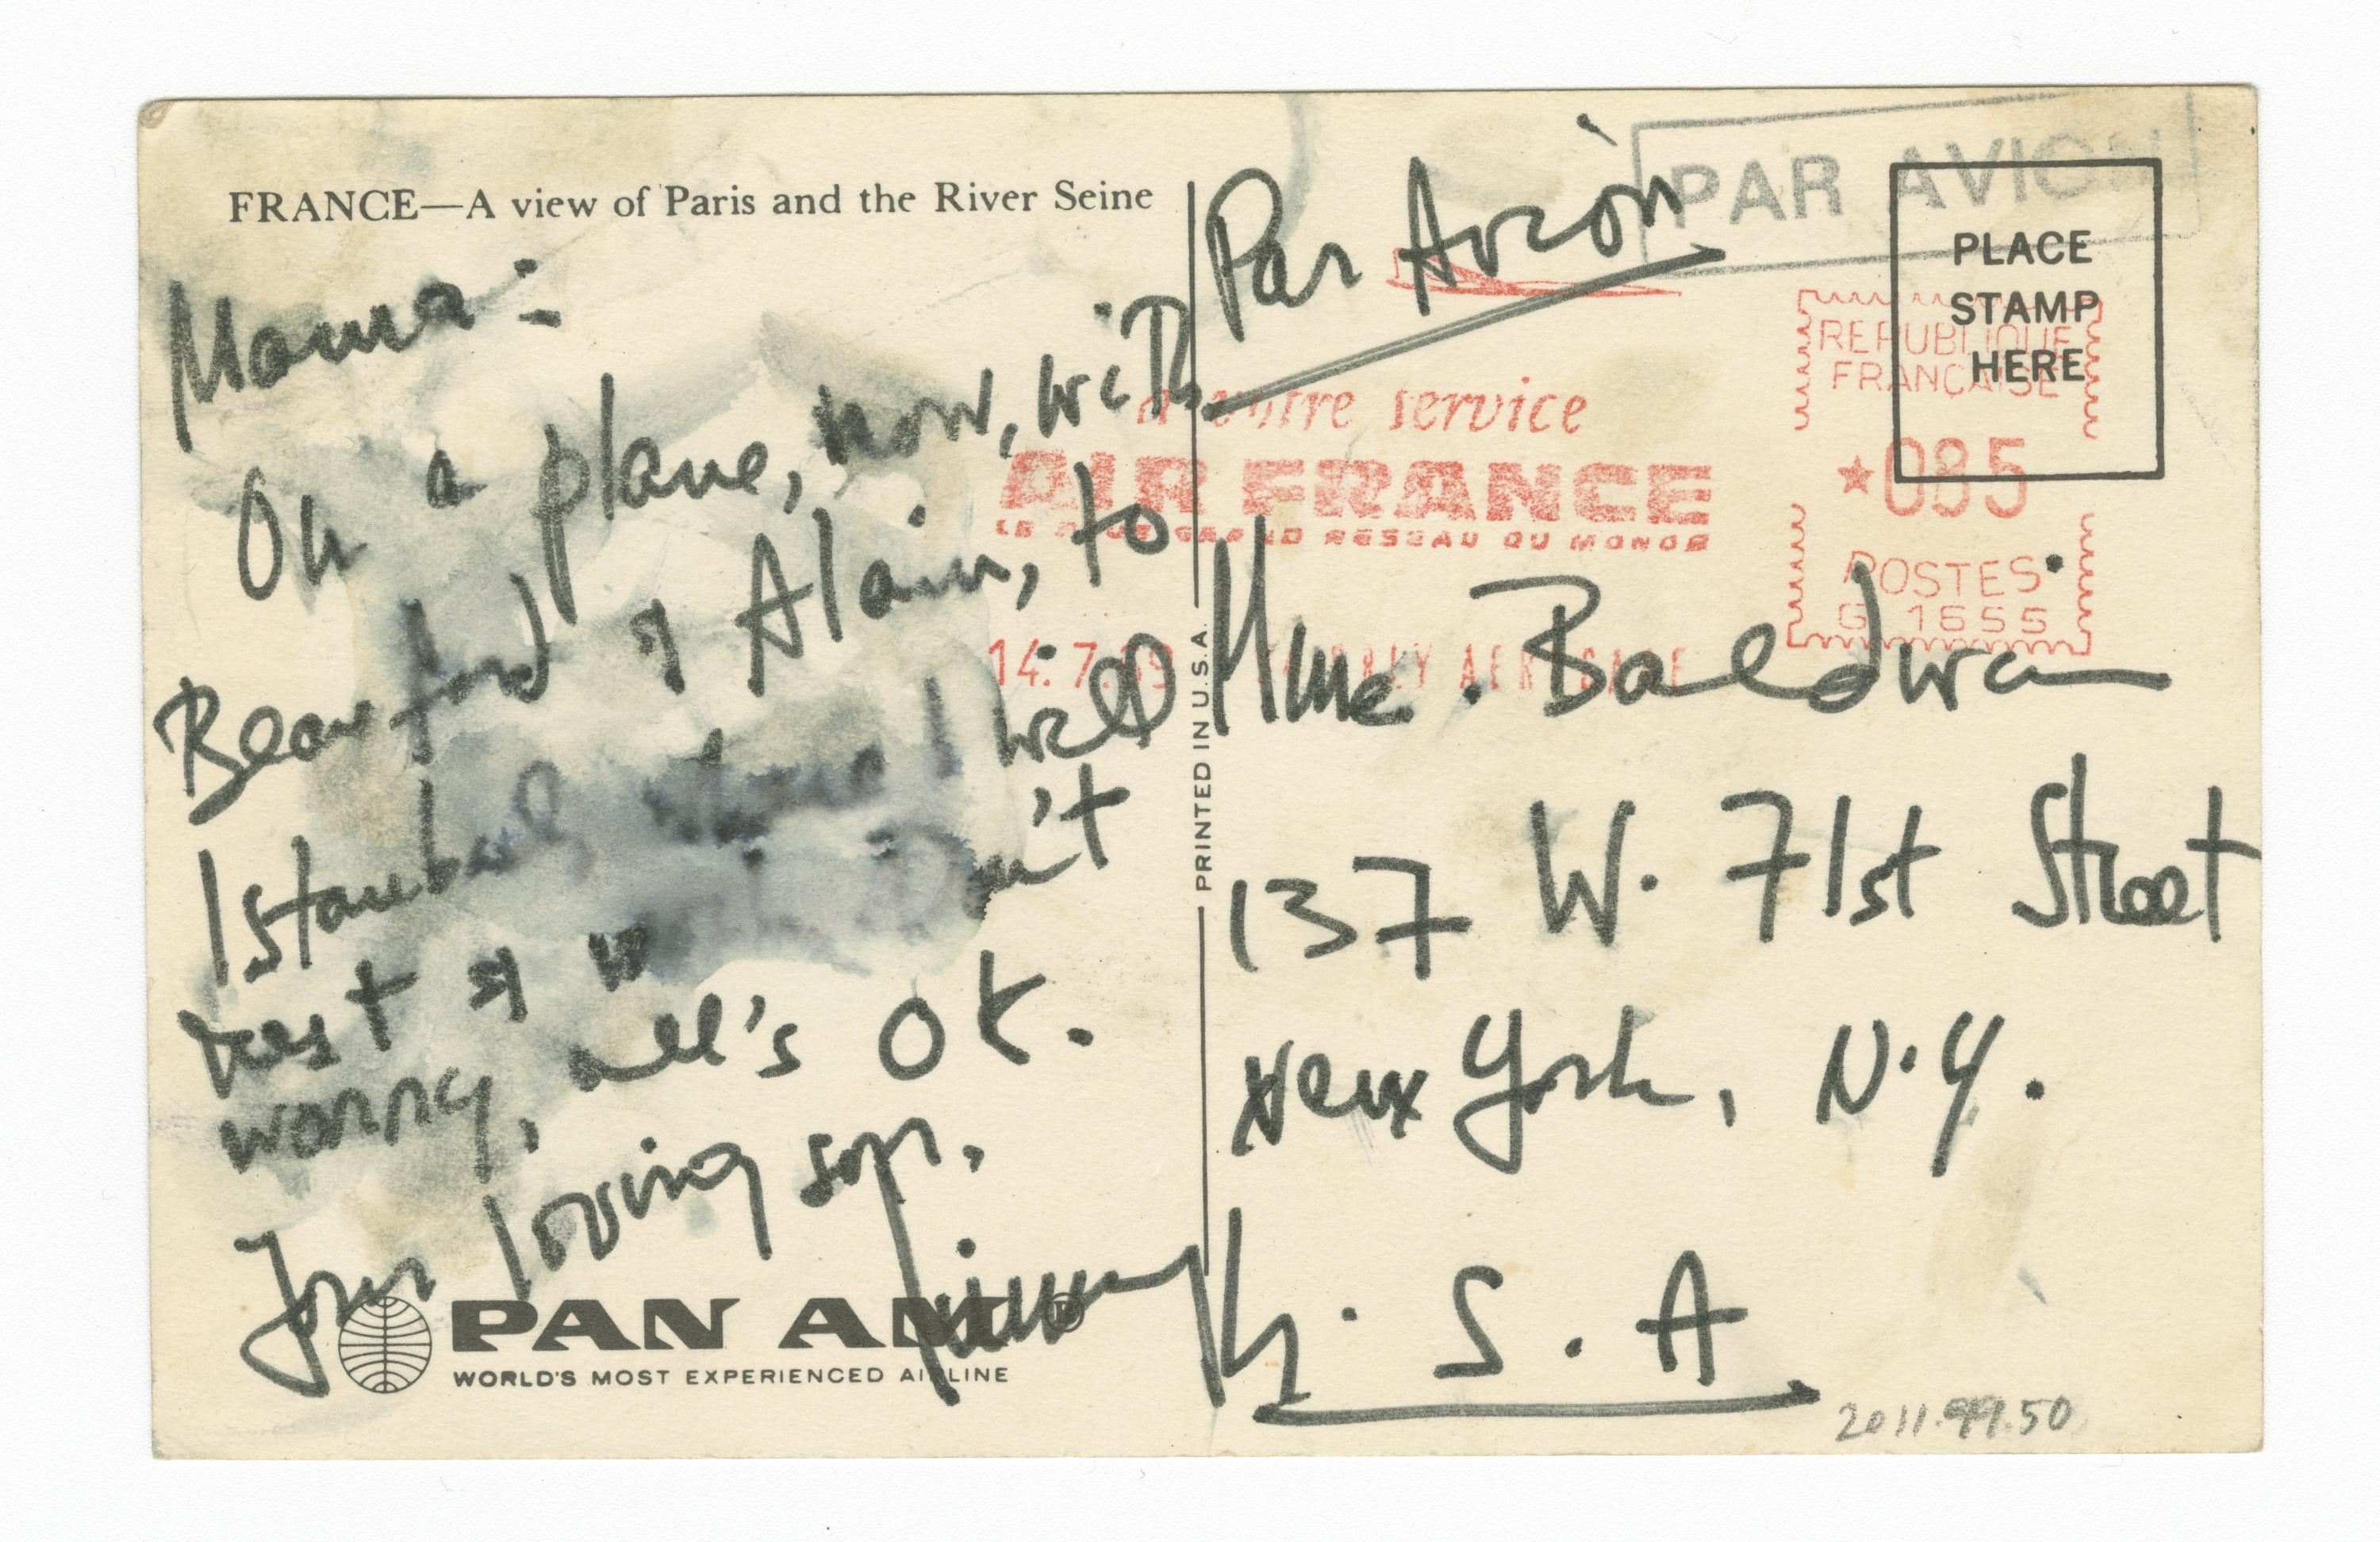 FRANCE—A view of Paris and the River Seine
Mama:
On a plane, now, with
Beauford & Alain, to
Istanbul, where I will
rest & work. Don't
worry, all's OK.
Your loving son,
Jimmy
PAN AM®
WORLD'S MOST EXPERIENCED AIRLINE
PRINTED IN U.S.A.
Par Avion
PAR AVION
PLACE
STAMP
HERE
REPUBLIQUE
FRANÇAISE
★085
POSTES
G 1655
à votre service
AIR FRANCE
LE PLUS GRAND RESEAU DU MONDE
14.7.69
Mme. Baldwin
137 W. 71st Street
New York, N.Y.
U.S.A
2011.99.50